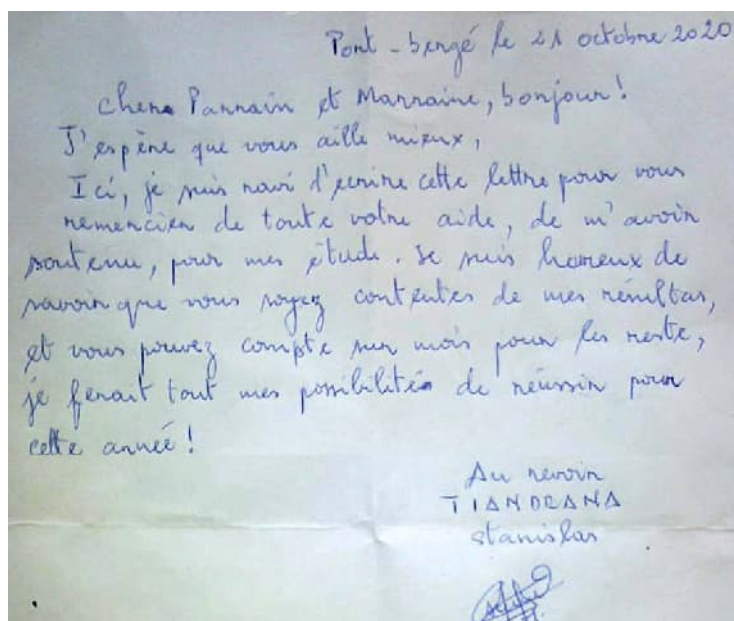 Pont-bengé le 21 octobre 2020
Chers Parrain et Marraine, bonjour!
J'espère que vous aille mieux,
Ici, je suis ravi d'ecrire cette lettre pour vous
remercier de toute votre aide, de m'avoir
soutenu, pour mes étude. Je suis hereux de
savoir que vous soyez contentes de mes résultas,
et vous pouvez compte sur mois pour les reste,
je ferait tout mes possibilités de réussir pour
cette année!
Au revoir
TIANDRANA
stanislas